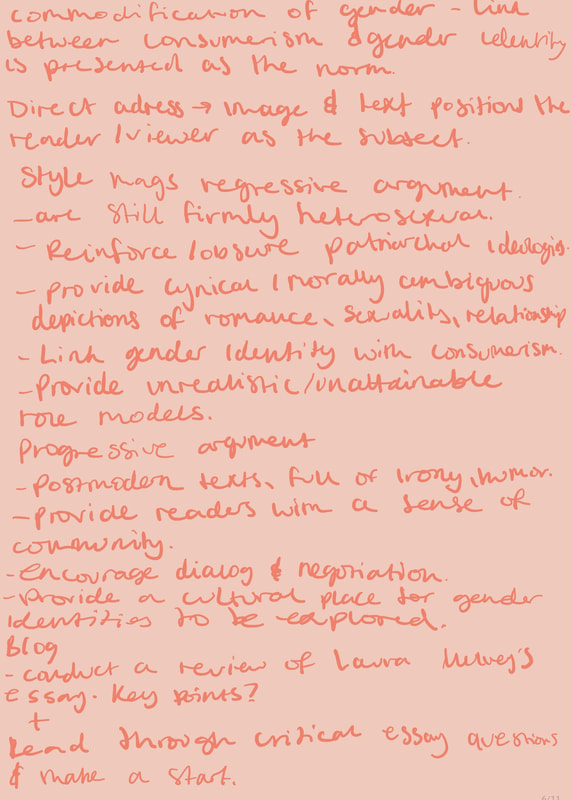 commodification of gender - link
between consumerism & gender identity
is presented as the norm.
Direct adress → image & text positions the
reader/viewer as the subject.
Style mags regressive argument.
- are still firmly heterosexual.
- Reinforce/obsure patriarchal ideologies.
- provide cynical/morally ambiguous
depictions of romance, sexuality, relationship
- Link gender identity with consumerism.
- Provide unrealistic/unattainable
role models.
Progressive argument
- Postmodern texts, full of irony, humor.
- Provide readers with a sense of
community.
- Encourage dialog & negotiation.
- Provide a cultural place for gender
identities to be explored.
Blog
- conduct a review of Laura Mulvey's
essay. Key points?
+
Read through critical essay questions
& make a start.